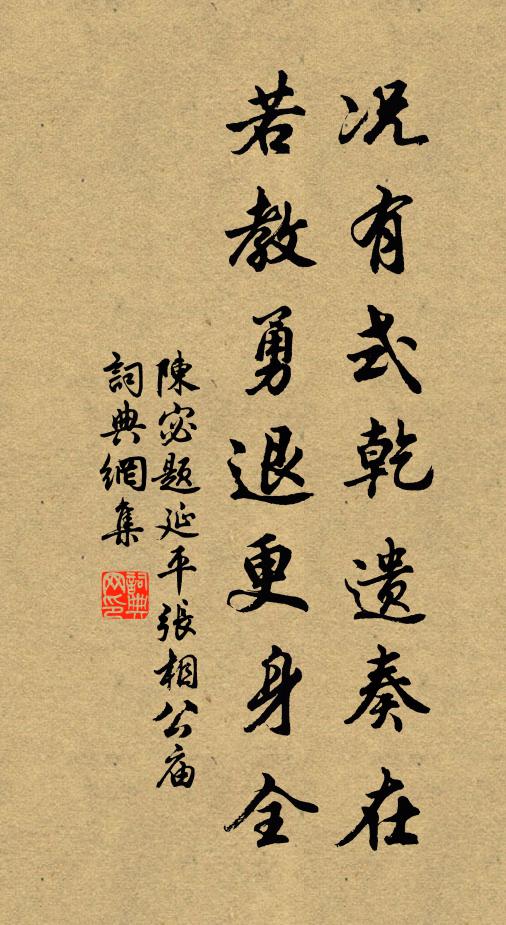 况有式乾遗奏在
若教勇退更身全
陳宓题延平張相公庙
詞典網集
詞典网印